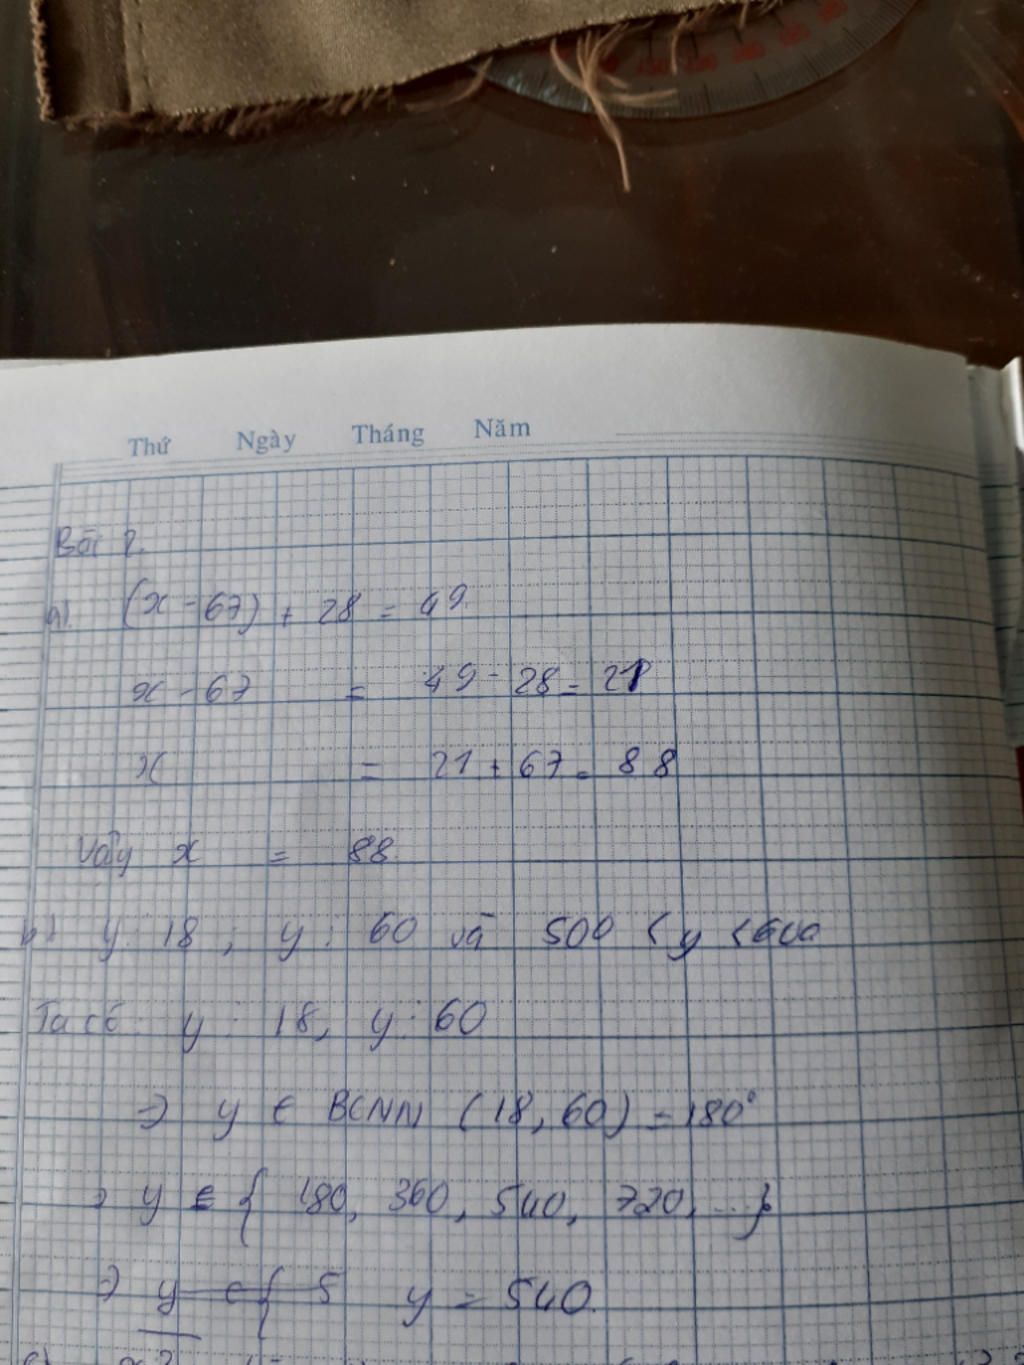 Thứ Ngày Tháng Năm
Bài 2.
a). (x - 67) + 28 = 49.
x - 67 = 49 - 28 = 21
x = 21 + 67 = 88
Vậy x = 88.
b) y : 18 ; y : 60 và 500 < y < 600
Ta có: y : 18, y : 60
=> y ∈ BCNN (18, 60) = 180°
> y ∈ { 180, 360, 540, 720, ...}
=> y ∈ { 5 y = 540.